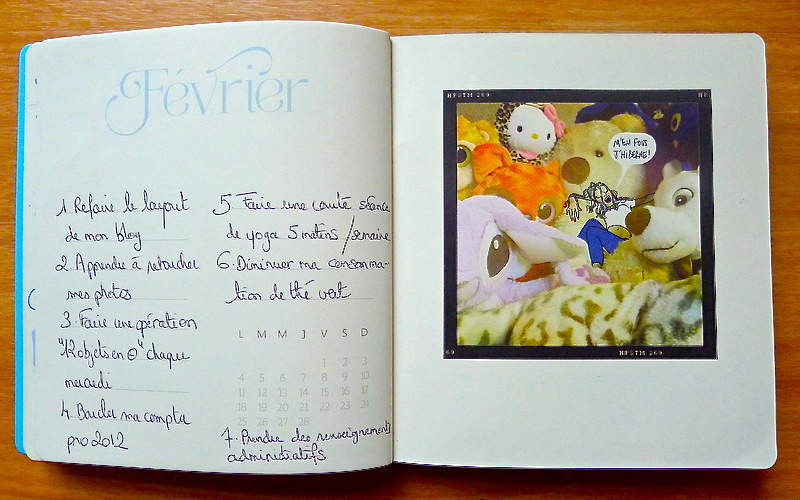 Février
1. Refaire le layout
de mon blog
2. Apprendre à retoucher
mes photos
3. Faire une opération
"12 objets en ⊖" chaque
mercredi
4. Boucler ma compta
pro 2012
5. Faire une courte séance
de yoga 5 matins / semaine
6. Diminuer ma consomma-
tion de thé vert
L M M J V S D
1 2 3
4 5 6 7 8 9 10
11 12 13 14 15 16 17
18 19 20 21 22 23 24
25 26 27 28
7. Prendre des renseignements
administratifs
HPSTM 269
HP
M'EN FOUS
J'HIBERNE!
69
HPSTM 269